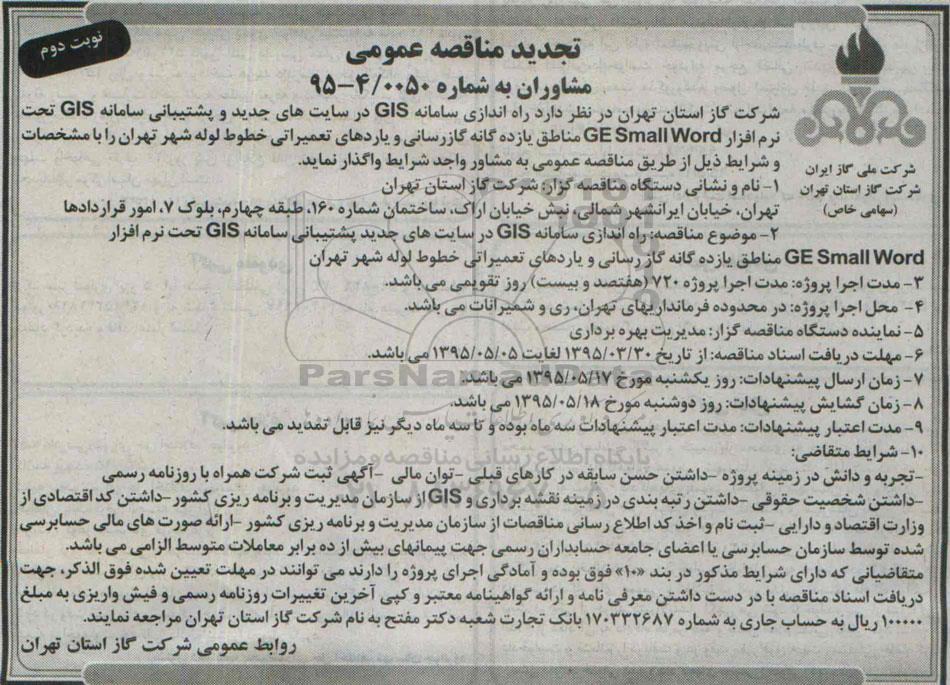 نوبت دوم
تجدید مناقصه عمومی
مشاوران به شماره ۹۵-۴/۰۰۵۰
شرکت ملی گاز ایران
شرکت گاز استان تهران
(سهامی خاص)
شرکت گاز استان تهران در نظر دارد راه اندازی سامانه GIS در سایت های جدید و پشتیبانی سامانه GIS تحت
نرم افزار GE Small Word مناطق یازده گانه گازرسانی و یاردهای تعمیراتی خطوط لوله شهر تهران را با مشخصات
و شرایط ذیل از طریق مناقصه عمومی به مشاور واجد شرایط واگذار نماید.
۱- نام و نشانی دستگاه مناقصه گزار: شرکت گاز استان تهران
تهران، خیابان ایرانشهر شمالی، نبش خیابان اراک، ساختمان شماره ۱۶۰، طبقه چهارم، بلوک ۷، امور قراردادها
۲- موضوع مناقصه: راه اندازی سامانه GIS در سایت های جدید پشتیبانی سامانه GIS تحت نرم افزار
GE Small Word مناطق یازده گانه گاز رسانی و یاردهای تعمیراتی خطوط لوله شهر تهران
۳- مدت اجرا پروژه: مدت اجرا پروژه ۷۲۰ (هفتصد و بیست) روز تقویمی می باشد.
۴- محل اجرا پروژه: در محدوده فرمانداریهای تهران، ری و شمیرانات می باشد.
۵- نماینده دستگاه مناقصه گزار: مدیریت بهره برداری
۶- مهلت دریافت اسناد مناقصه: از تاریخ ۱۳۹۵/۰۳/۳۰ لغایت ۱۳۹۵/۰۵/۰۵ می باشد.
ParsNamadData
۷- زمان ارسال پیشنهادات: روز یکشنبه مورخ ۱۳۹۵/۰۵/۱۷ می باشد.
۸- زمان گشایش پیشنهادات: روز دوشنبه مورخ ۱۳۹۵/۰۵/۱۸ می باشد.
۹- مدت اعتبار پیشنهادات: مدت اعتبار پیشنهادات سه ماه بوده و تا سه ماه دیگر نیز قابل تمدید می باشد.
پایگاه اطلاع رسانی مناقصه و مزایده
۱۰- شرایط متقاضی:
-تجربه و دانش در زمینه پروژه -داشتن حسن سابقه در کارهای قبلی -توان مالی -آگهی ثبت شرکت همراه با روزنامه رسمی
-داشتن شخصیت حقوقی -داشتن رتبه بندی در زمینه نقشه برداری و GIS از سازمان مدیریت و برنامه ریزی کشور -داشتن کد اقتصادی از
وزارت اقتصاد و دارایی -ثبت نام و اخذ کد اطلاع رسانی مناقصات از سازمان مدیریت و برنامه ریزی کشور -ارائه صورت های مالی حسابرسی
شده توسط سازمان حسابرسی یا اعضای جامعه حسابداران رسمی جهت پیمانهای بیش از ده برابر معاملات متوسط الزامی می باشد.
متقاضیانی که دارای شرایط مذکور در بند «۱۰» فوق بوده و آمادگی اجرای پروژه را دارند می توانند در مهلت تعیین شده فوق الذکر، جهت
دریافت اسناد مناقصه با در دست داشتن معرفی نامه و ارائه گواهینامه معتبر و کپی آخرین تغییرات روزنامه رسمی و فیش واریزی به مبلغ
۱۰۰۰۰۰ ریال به حساب جاری به شماره ۱۷۰۳۳۲۶۸۷ بانک تجارت شعبه دکتر مفتح به نام شرکت گاز استان تهران مراجعه نمایند.
روابط عمومی شرکت گاز استان تهران